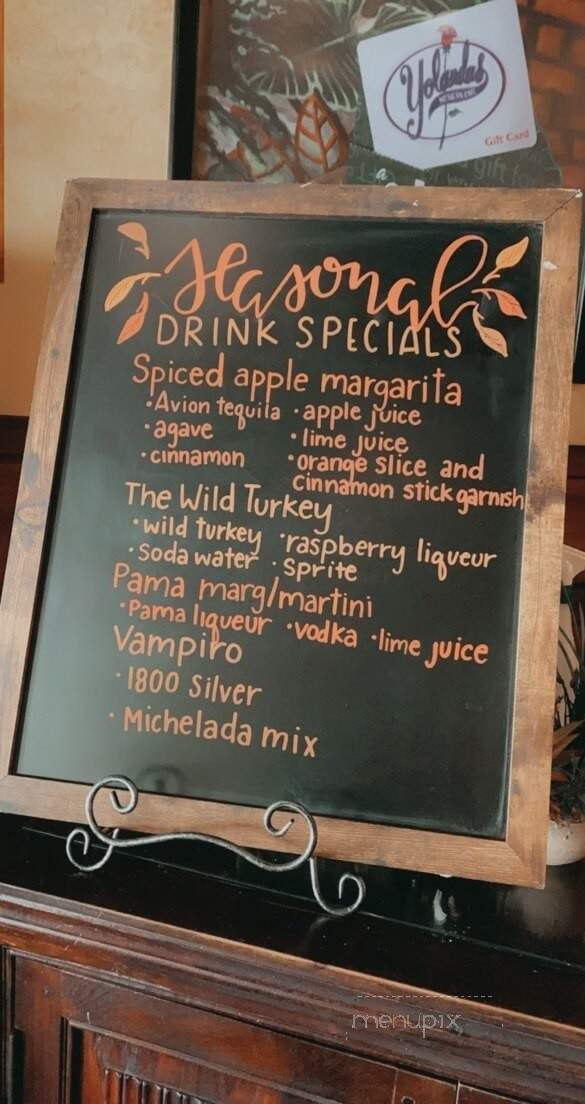 Yolandas
MEXICAN CAFE
Gift Card
gift
Seasonal
DRINK SPECIALS
Spiced apple margarita
•Avion tequila •apple juice
•agave •lime juice
•cinnamon •orange slice and
cinnamon stick garnish
The Wild Turkey
•wild turkey •raspberry liqueur
•soda water •sprite
Pama marg/martini
•Pama liqueur •vodka •lime juice
Vampiro
•1800 Silver
•Michelada mix
menupix